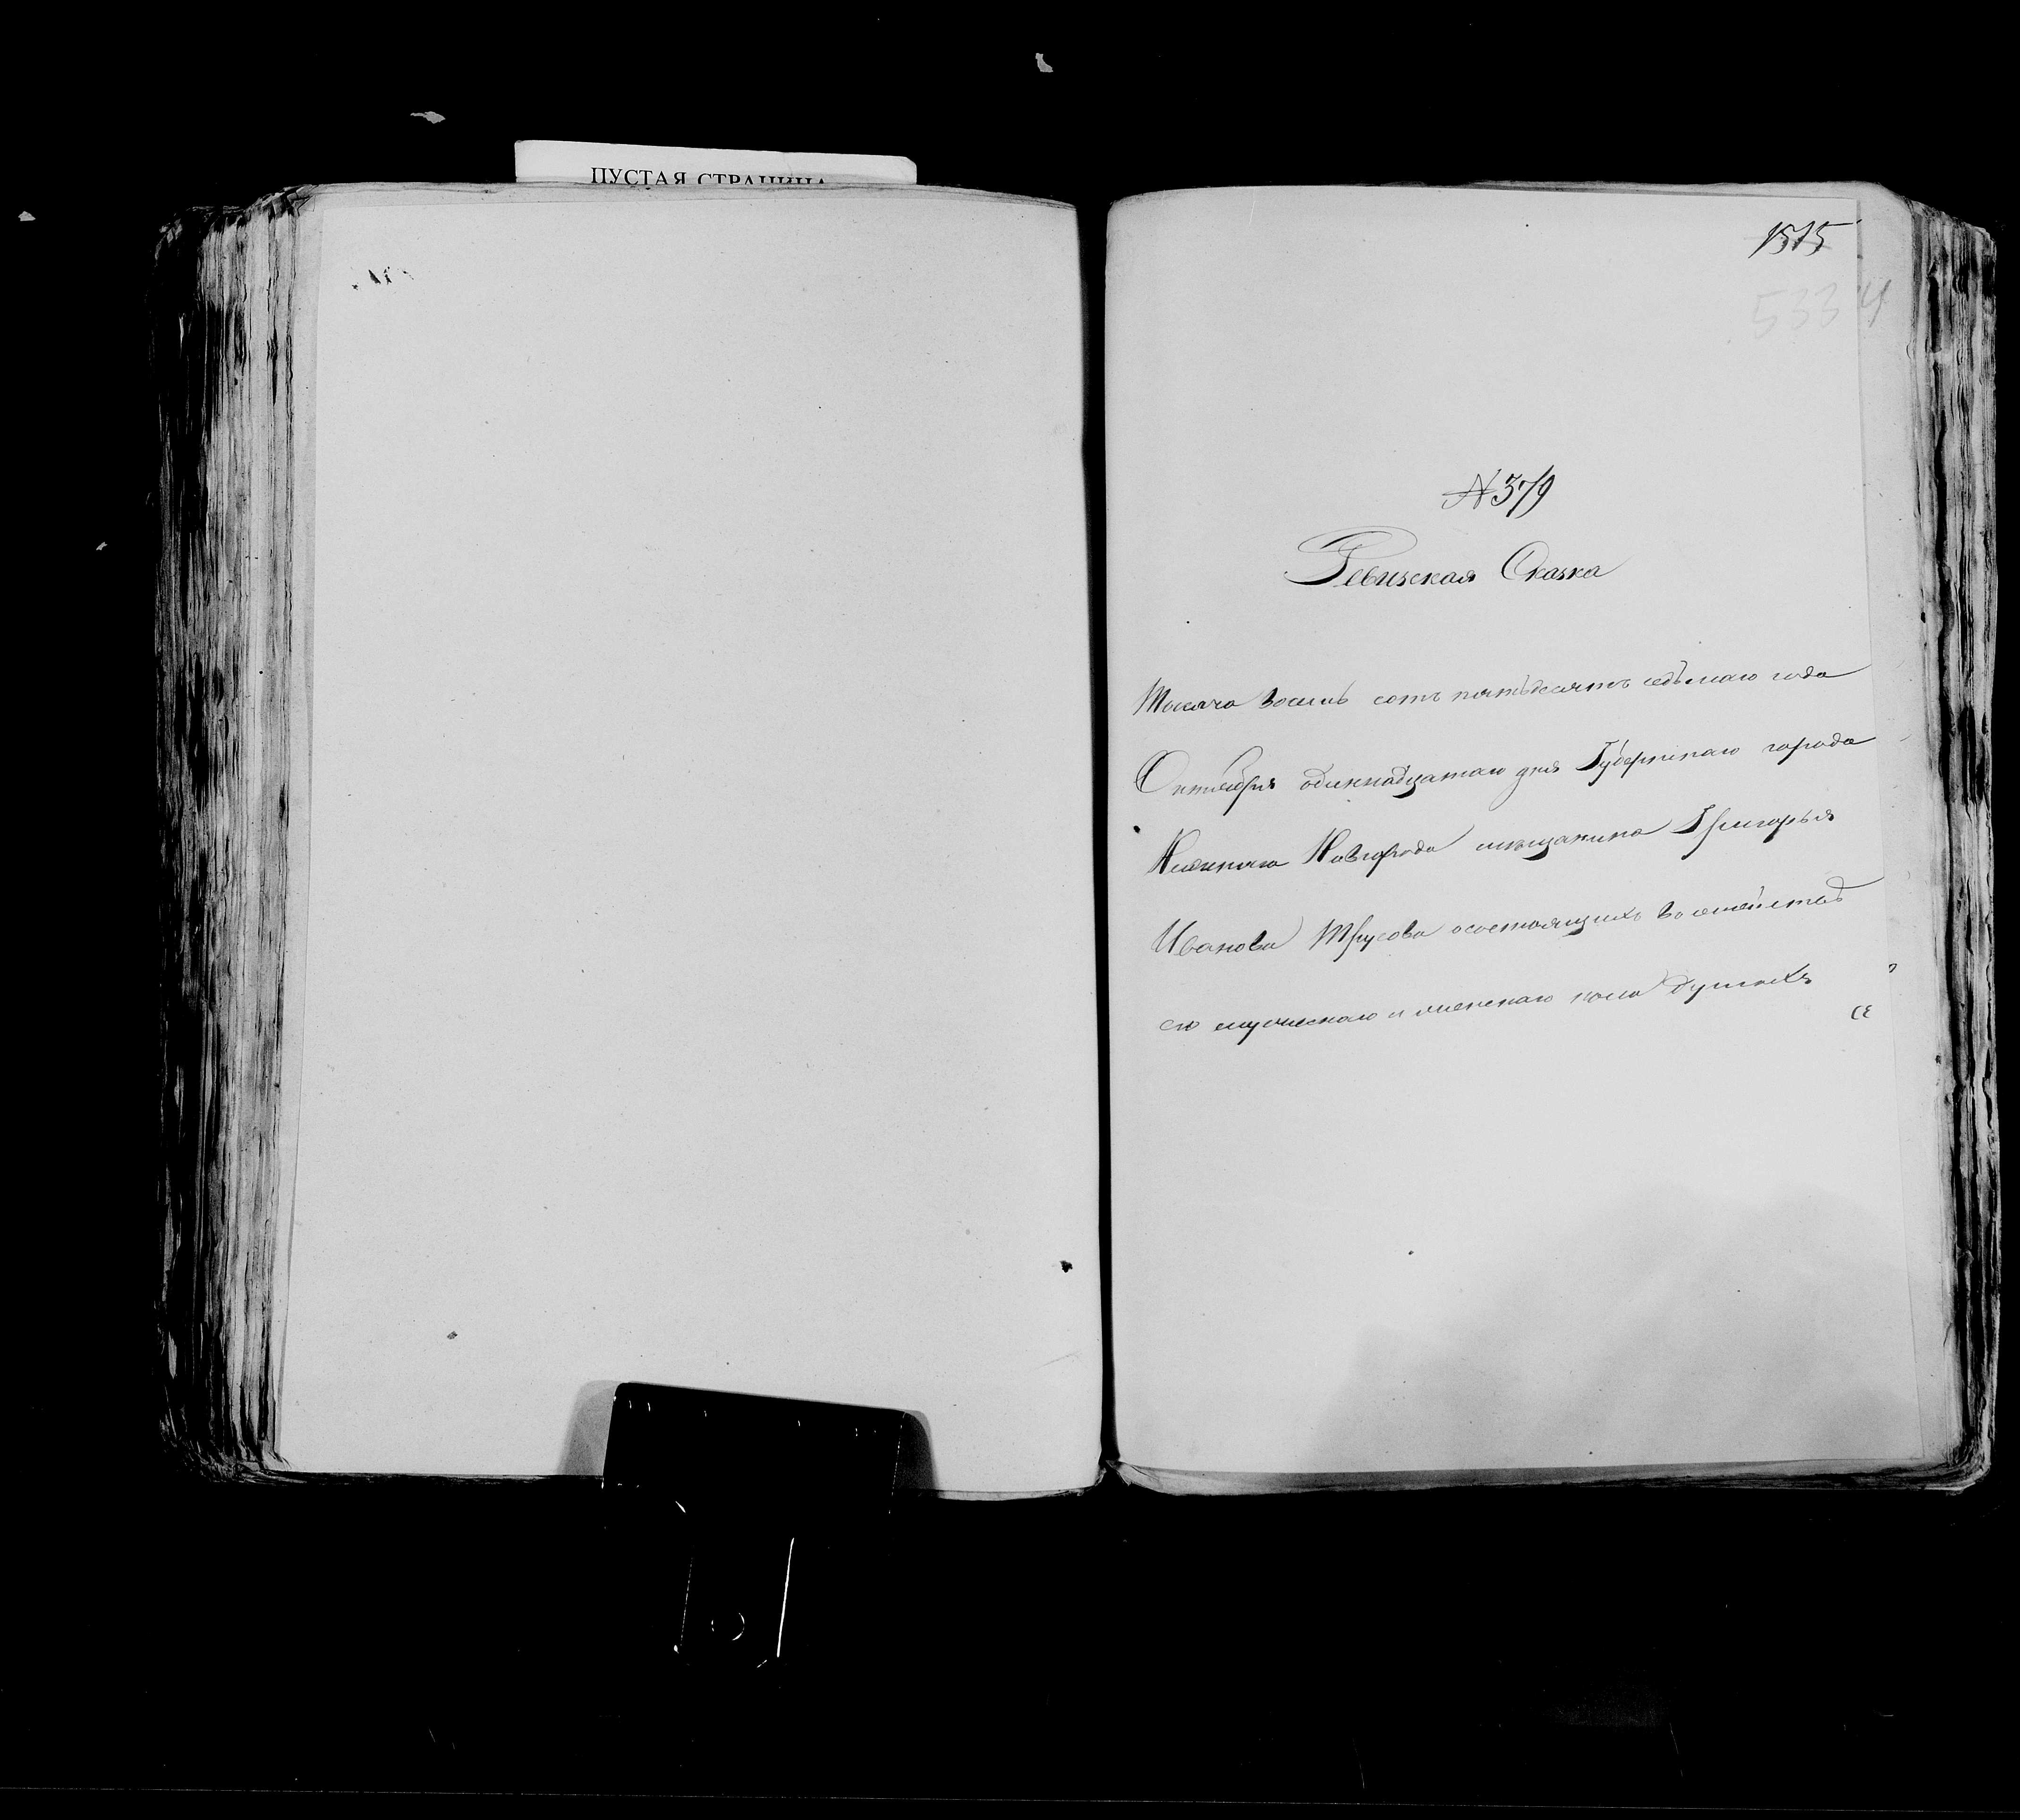 ПУСТАЯ СТРАНИЦА
1515
533
№ 379
Ревизская Сказка
Тысяча восемь сотъ пятьдесятъ седьмаго года
Октября одиннадцатаго дня Губернскаго города
Нижняго Новгорода мещанина Григорья
Иванова Трусова осостоящихъ в семействѣ
его мужескаго и женскаго пола душахъ